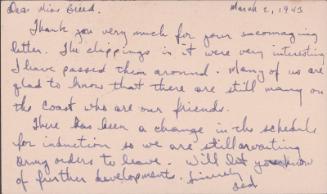 Dear Miss Breed. March 2, 1943
Thank you very much for your encouraging
letter. The clippings in it were very interesting
I have passed them around. Many of us are
glad to know that there are still many on
the coast who are our friends.
There has been a change in the schedule
for induction so we are still awaiting
army orders to leave. Will let you know
of further developments. Sincerely
Ted